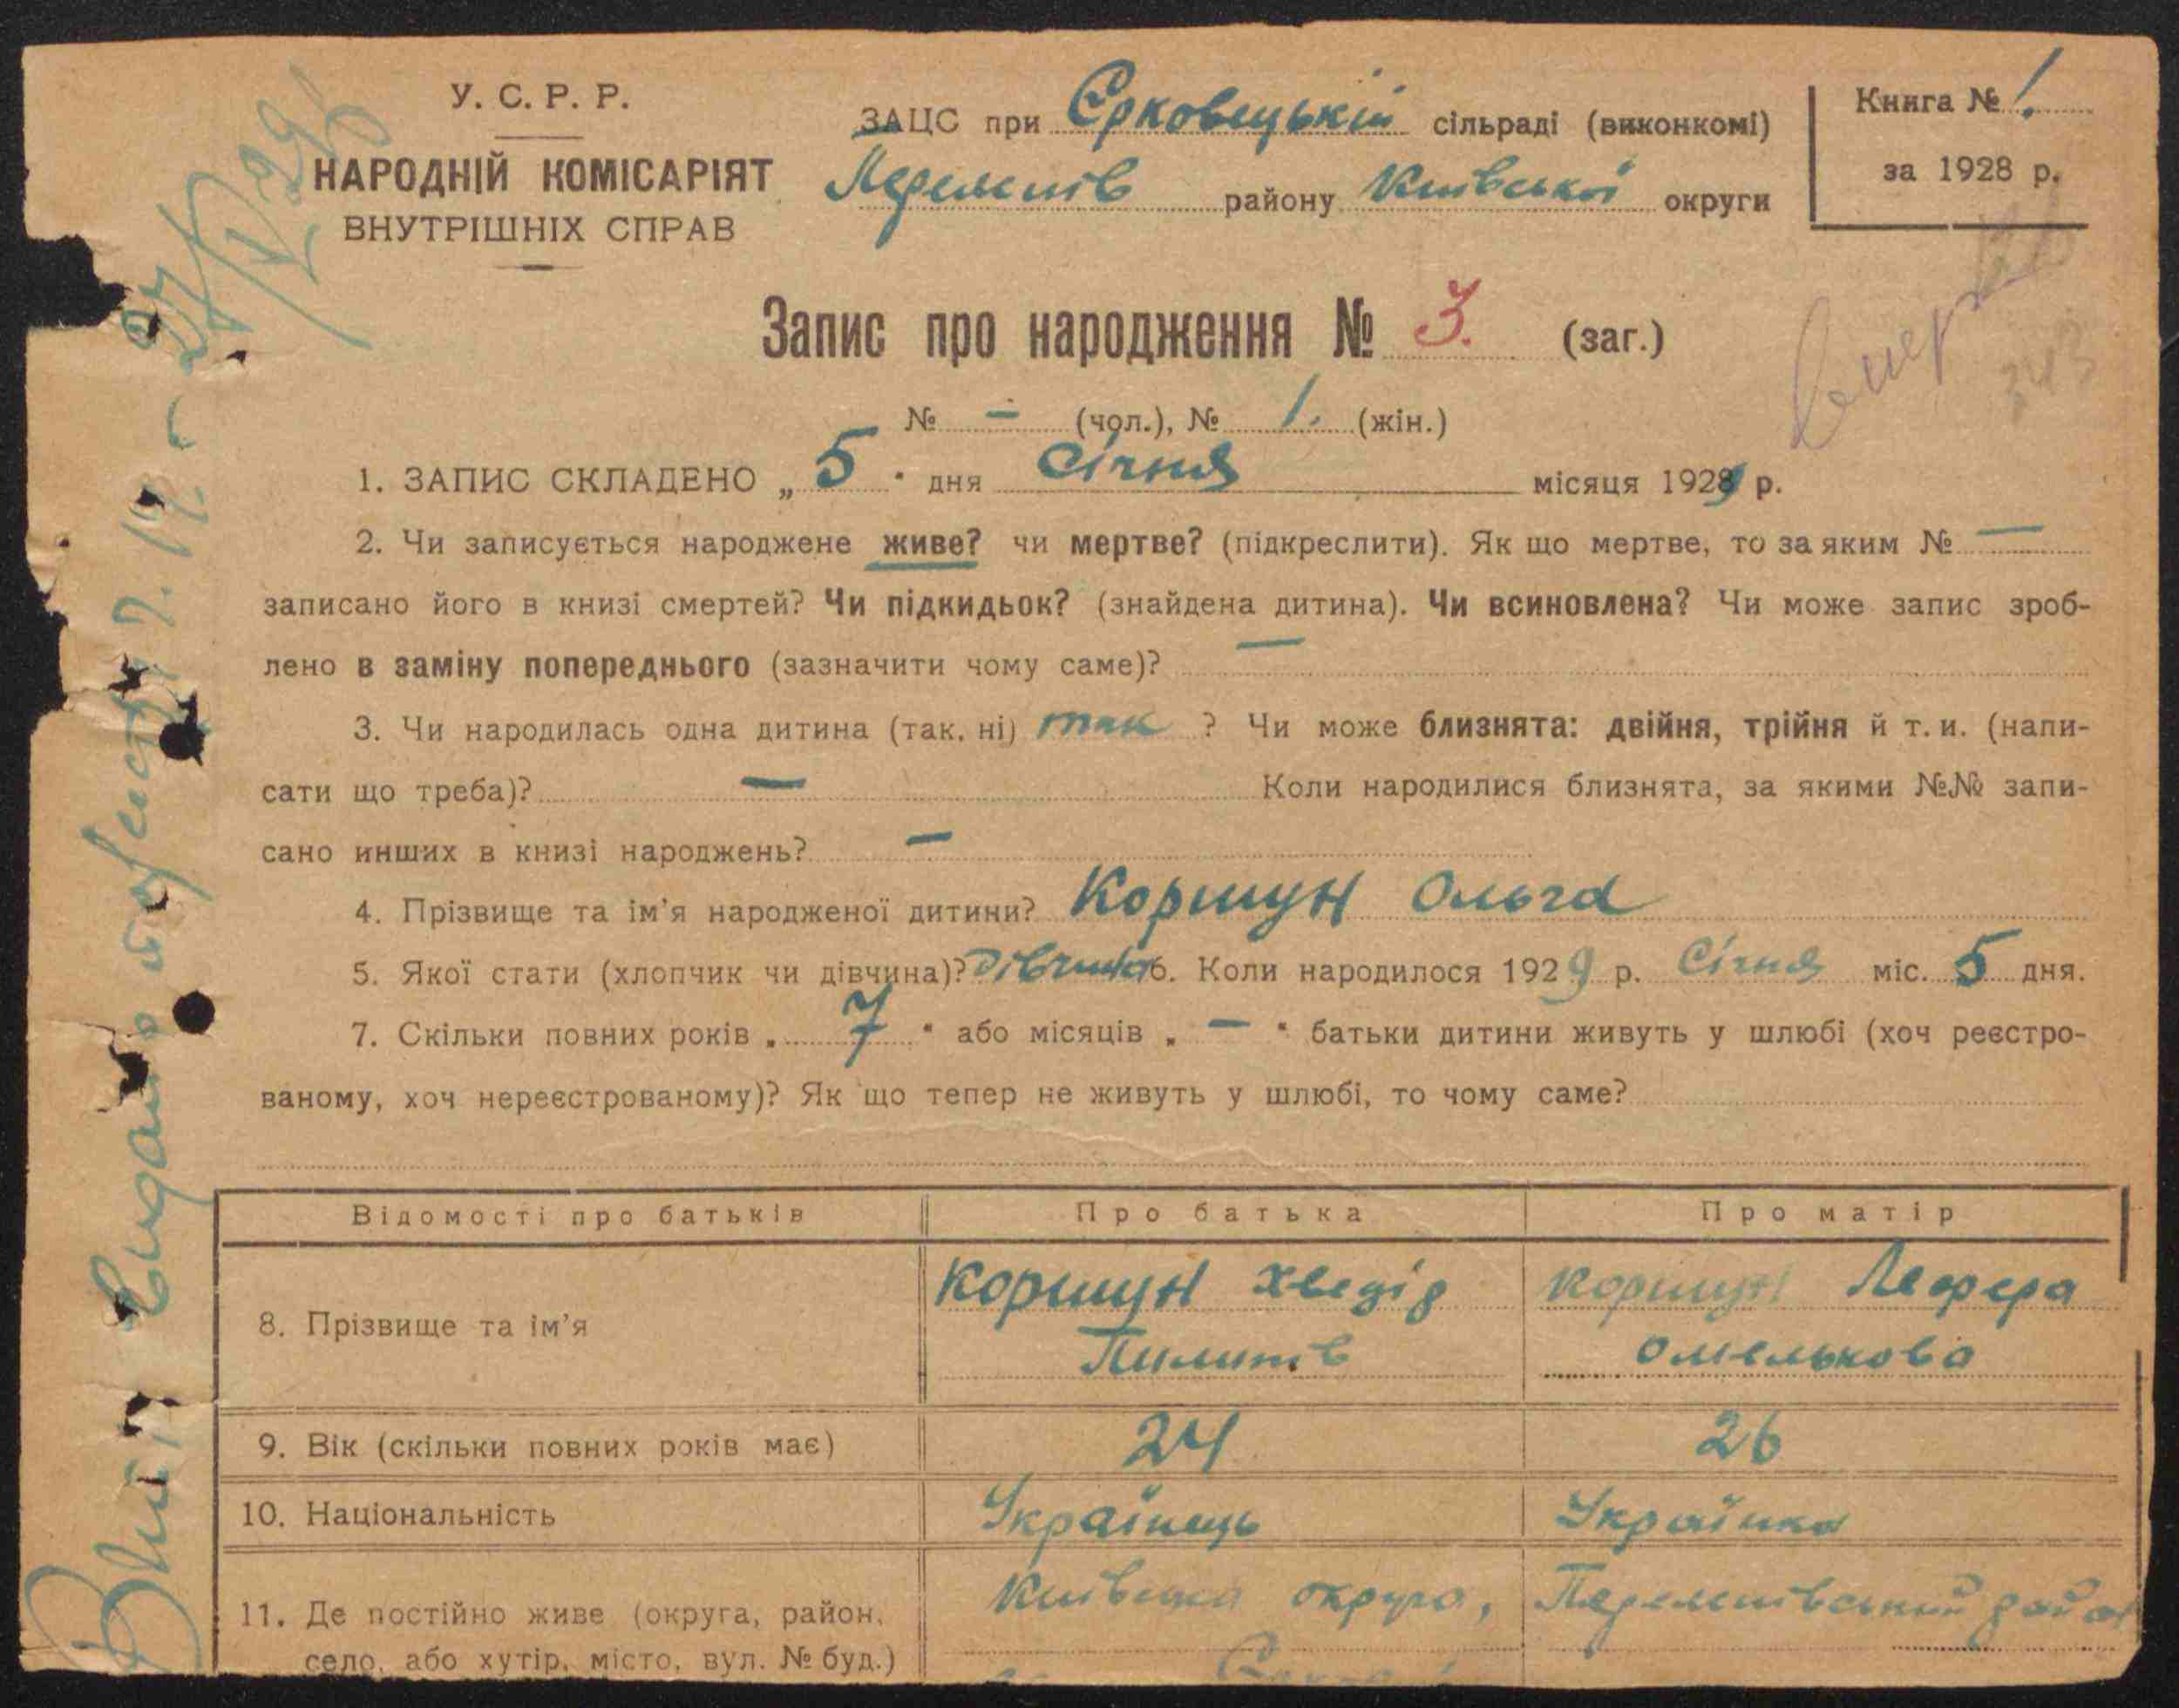 У. С. Р. Р.
НАРОДНІЙ КОМІСАРІЯТ
ВНУТРІШНІХ СПРАВ
ЗАЦС при Єрковецькій сільраді (виконкомі)
району Київської округи
Книга № 1.
за 1928 р.
Запис про народження № 3. (заг.)
№ — (чол.), № 1. (жін.)
1. ЗАПИС СКЛАДЕНО „ 5 " дня Січня місяця 1929 р.
2. Чи записується народжене живе? чи мертве? (підкреслити). Як що мертве, то за яким № —
записано його в книзі смертей? Чи підкидьок? (знайдена дитина). Чи всиновлена? Чи може запис зроб-
лено в заміну попереднього (зазначити чому саме)? —
3. Чи народилась одна дитина (так, ні) так ? Чи може близнята: двійня, трійня й т. и. (напи-
сати що треба)? — Коли народилися близнята, за якими №№ запи-
сано инших в книзі народжень? —
4. Прізвище та ім'я народженої дитини? Коршун Ольга
5. Якої стати (хлопчик чи дівчина)? Дівчинка 6. Коли народилося 1929 р. Січня міс. 5 дня.
7. Скільки повних років „ 7 " або місяців „ — " батьки дитини живуть у шлюбі (хоч реєстро-
ваному, хоч нереєстрованому)? Як що тепер не живуть у шлюбі, то чому саме?
Відомості про батьків Про батька Про матір
8. Прізвище та ім'я Коршун Хведір Коршун
Пилипів Омелькова
9. Вік (скільки повних років має) 24 26
10. Національність Українець Українка
11. Де постійно живе (округа, район, Київська округа,
село, або хутір, місто, вул. № буд.)